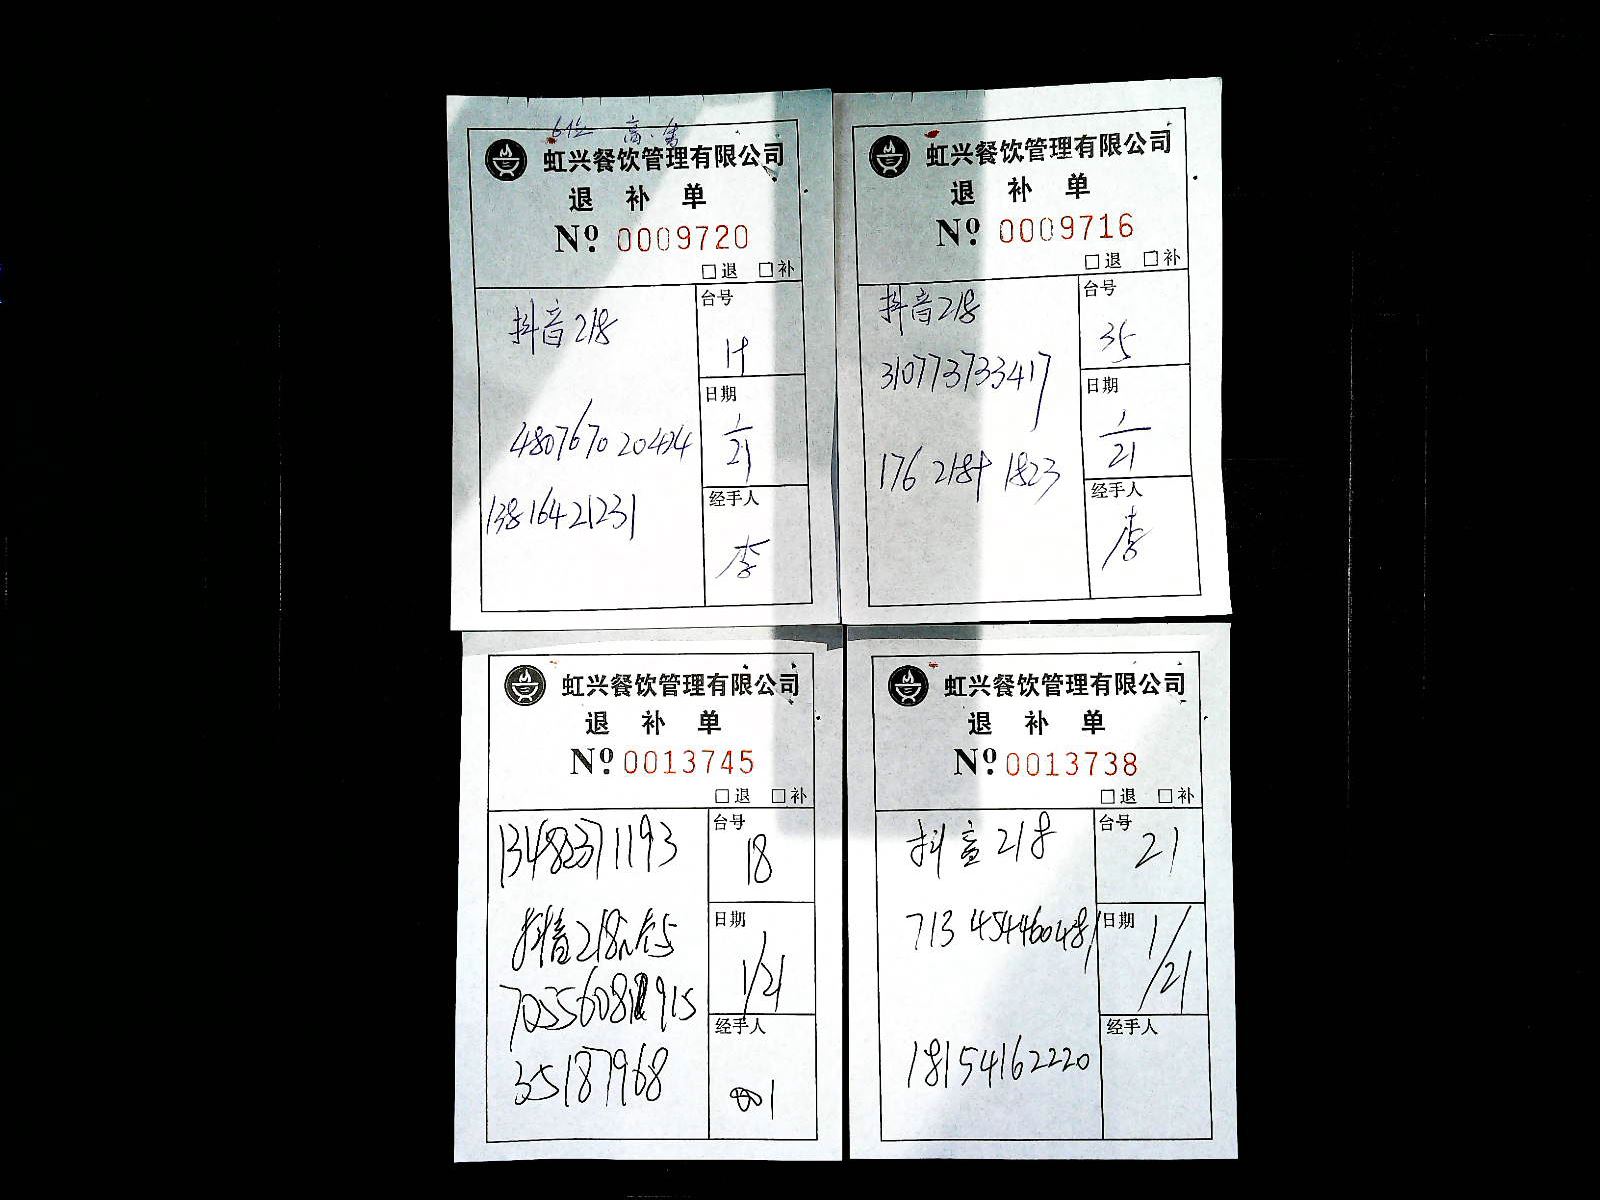 虹兴餐饮管理有限公司
退 补 单
Nº 0009720
□退 □补
抖音218
台号
日期
1/21
480767020424
13816421231
经手人
李
虹兴餐饮管理有限公司
退 补 单
Nº 0009716
□退 □补
抖音218
台号
35
310773733417
日期
1/21
176 2184 1823
经手人
李
虹兴餐饮管理有限公司
退 补 单
Nº 0013745
□退 □补
13482371193
台号
18
抖音218
日期
1/21
35187968
经手人
虹兴餐饮管理有限公司
退 补 单
Nº 0013738
□退 □补
抖音218
台号
21
713 454460481
日期
1/21
18154162220
经手人